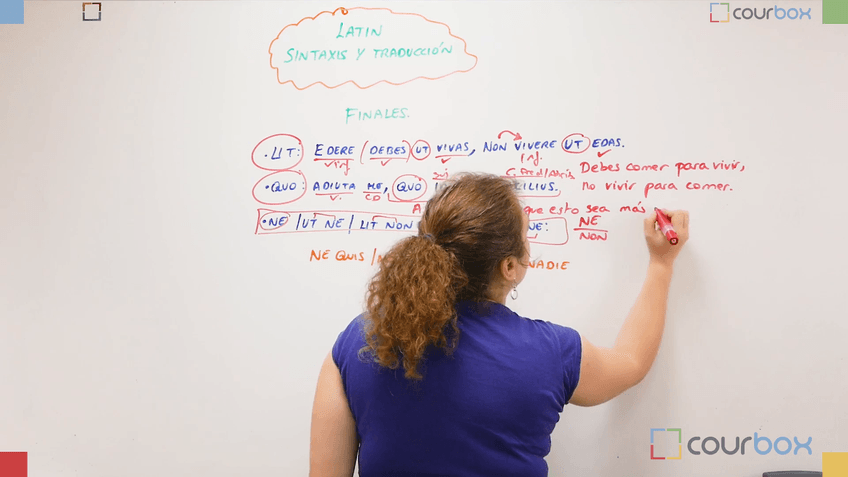 courbox
LATIN
SINTAXIS Y TRADUCCIÓN
FINALES.
• UT: EDERE (DEBES) UT VIVAS, NON VIVERE UT EDAS.
V.inf V V inf.
Debes comer para vivir,
no vivir para comer.
• QUO: ADIUTA ME, QUO CILIUS.
V. CD
que esto sea más
• NE / UT NE / UT NON NE:
NE
NON
NE QUIS / NADIE
courbox